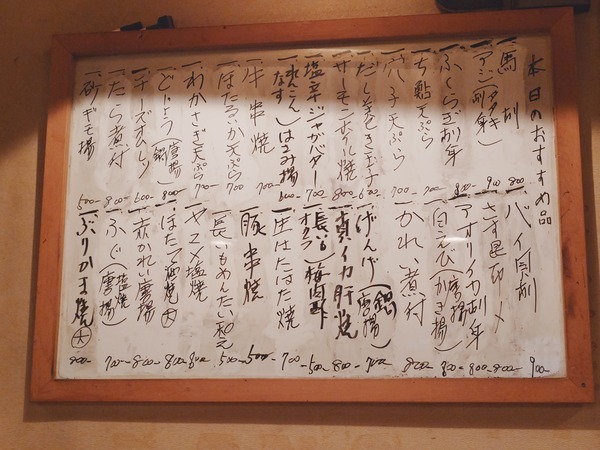 本日のおすすめ品
一馬刺 800-
一アジ(タタキ 刺身) 900
一ふくらぎ刺身 800-
一ち鮎天ぷら 700-
一穴子天ぷら 700-
一だしまき玉子 600
一サーモンホイル焼 800-
一塩辛ジャガバター 700
一れんこん なす はさみ揚 600-
一牛串焼 700
一ほたるいか天ぷら 700
一わかさぎ天ぷら 700-
一どじょう(唐揚 鍋) 800-
一チーズオムレツ 600-
一たら煮付 800-
一砂ギモ揚 500-
一バイ貝刺 900
一さす昆布〆 800-
一アオリイカ刺身 800-
一白えび(唐揚 かき揚) 800-
一かれい煮付 800-
一げんげ(鍋 唐揚) 700
一真イカ肝焼 800-
一長いも オクラ 梅肉酢 500-
一生はたはた焼 700
一豚串焼 500-
一長いもめんたい和え 500-
一ヤマメ塩焼 800
一ほたて酒焼(大) 800
一赤かれい唐揚 800-
一ふぐ(塩焼 唐揚) 700-
一ぶりかま焼(大) 800-